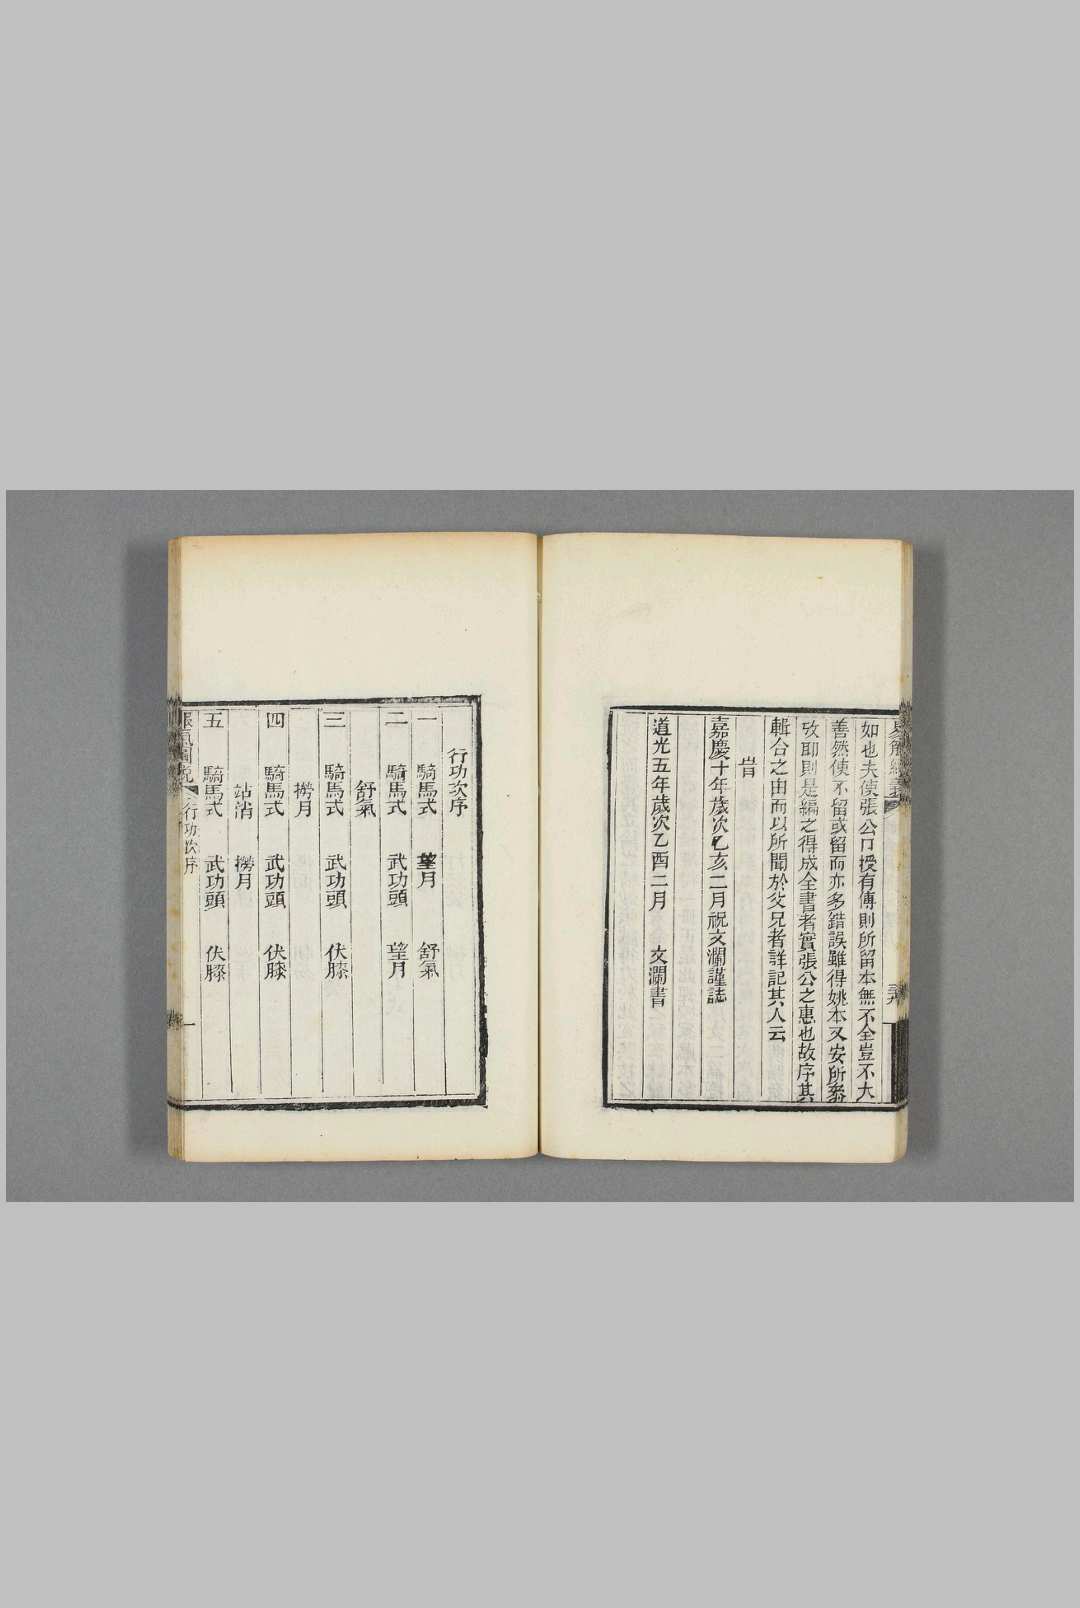 如也夫使張公口授有傳則所留本無不全豈不大
善然使不留或留而亦多錯誤雖得姚本又安所叅
攷耶則是編之得成全書者實張公之惠也故序其
輯合之由而以所聞於父兄者詳記其人云
旹
嘉慶十年歲次乙亥二月祝文瀾謹誌
道光五年歲次乙酉二月 文瀾書
行功次序
一 騎馬式 望月 舒氣
二 騎馬式 武功頭 望月
舒氣
三 騎馬式 武功頭 伏膝
撈月
四 騎馬式 武功頭 伏膝
站消 撈月
五 騎馬式 武功頭 伏膝
行功次序 一